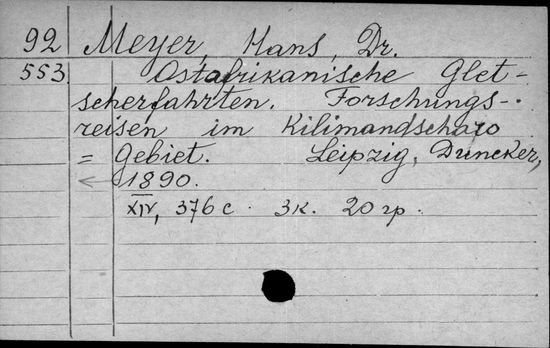 92 Meyer, Hans, Dr.
553. Ostafrikanische Glet-
scherfahrten. Forschungs-
reisen im Kilimandscharo
= Gebiet. Leipzig, Duncker,
← 1890.
XIV, 376 с. 3к. 20 гр.